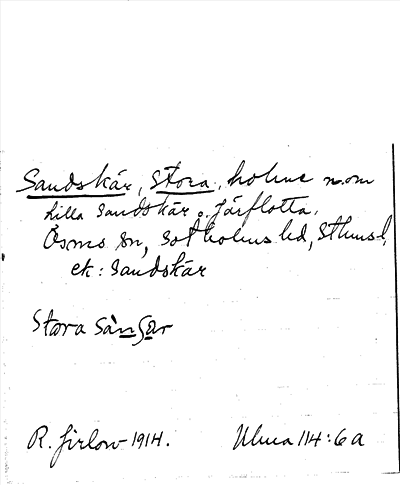 Sandskär, Stora, holme n.om
Lilla Sandskär o. Järflotta,
Ösmo sn, Sotholms hd, Sthmsl.
ek: Sandskär
Stora Sànsar
R. Jirlow 1914. Ulma 114:6a